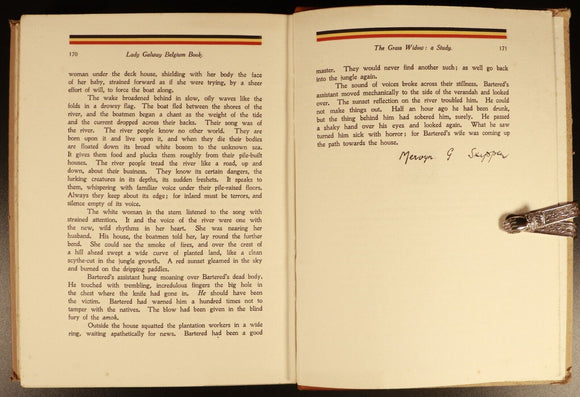 170 Lady Galway Belgium Book.
woman under the deck house, shielding with her body the face
of her baby, strained forward as if she were trying, by a sheer
effort of will, to force the boat along.
The wake broadened behind in slow, oily waves like the
folds in a drowsy flag. The boat fled between the shores of the
river, and the boatmen began a chant as the weight of the tide
and the current dropped across their backs. Their song was of
the river. The river people know no other world. They are
born upon it and live upon it, and when they die their bodies
are floated down its broad white bosom to the unknown sea.
It gives them food and plucks them roughly from their pile-built
houses. The river people tread the river like a road, up and
down, about their business. They know its certain dangers, the
lurking creatures in its depths, its sudden freshets. It speaks to
them, whispering with familiar voice under their pile-raised floors.
Always they keep about its edge; for inland must be terrors, and
silence empty of its voice.
The white woman in the stern listened to the song with
strained attention. It and the voice of the river were one with
the new, wild rhythms in her heart. She was nearing her
husband. His house, the boatmen told her, lay round the further
bend. She could see the smoke of fires, and over the crest of
a hill ahead swept a wide curve of planted land, like a clean
scythe-cut in the jungle growth. A red sunset gleamed in the sky
and burned on the dripping paddles.
Bartered's assistant hung moaning over Bartered's dead body.
He touched with trembling, incredulous fingers the big hole in
the chest where the knife had gone in. He should have been
the victim. Bartered had warned him a hundred times not to
tamper with the natives. The blow had been given in the blind
fury of the amok.
Outside the house squatted the plantation workers in a wide
ring, waiting apathetically for news. Bartered had been a good
The Grass Widow: a Study. 171
master. They would never find another such; as well go back
into the jungle again.
The sound of voices broke across their stillness. Bartered's
assistant moved mechanically to the side of the verandah and looked
over. The sunset reflection on the river troubled him. He could
not make things out. Half an hour ago he had been drunk,
but the thing behind him had sobered him, surely. He passed
a shaky hand over his eyes and looked again. What he saw
turned him sick with horror: for Bartered's wife was coming up
the path towards the house.
Mervyn G Skipper